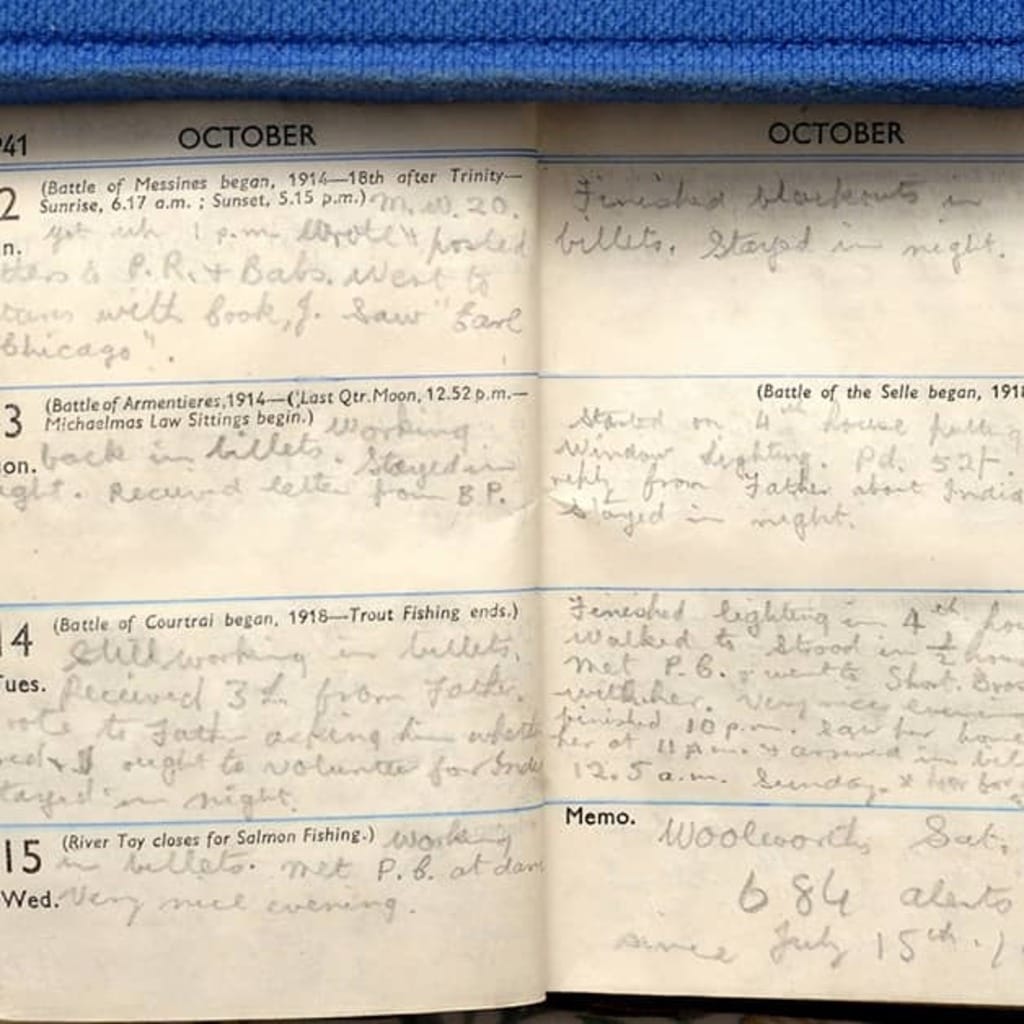 941 OCTOBER
2 (Battle of Messines began, 1914—18th after Trinity—
Sunrise, 6.17 a.m. ; Sunset, 5.15 p.m.) M.W. 20.
n. got up 1 p.m. Wrote & posted
tters to P.R. & Babs. Went to
with book, J. Saw "Earl
Chicago".
3 (Battle of Armentieres, 1914—(Last Qtr. Moon, 12.52 p.m.—
Michaelmas Law Sittings begin.) Working
on. back in billets. Stayed in
ight. Received letter from B.P.
14 (Battle of Courtrai began, 1918—Trout Fishing ends.)
Still working in billets.
Tues. Received 3£ from Father.
rote to Father asking him wheth
ought to volunteer for Indi
tayed in night.
15 (River Tay closes for Salmon Fishing.) Working
in billets. Met P.B. at dan
Wed. Very nice evening.
OCTOBER
Finished blackouts in
billets. Stayed in night.
(Battle of the Selle began, 1918
Started on 4th house putting
window lighting. Pd. 52/-.
reply from Father about India
Stayed in night.
Finished lighting in 4th hou
Walked to Strood in ½ hour
Met P.B. & went to Short. Bros
with her. Very nice evening
finished 10 p.m. Saw her home
her at 11 p.m. & arrived in bil
12.5 a.m. Sunday.
Memo. Woolworths Sat.
684 alerts
since July 15th.